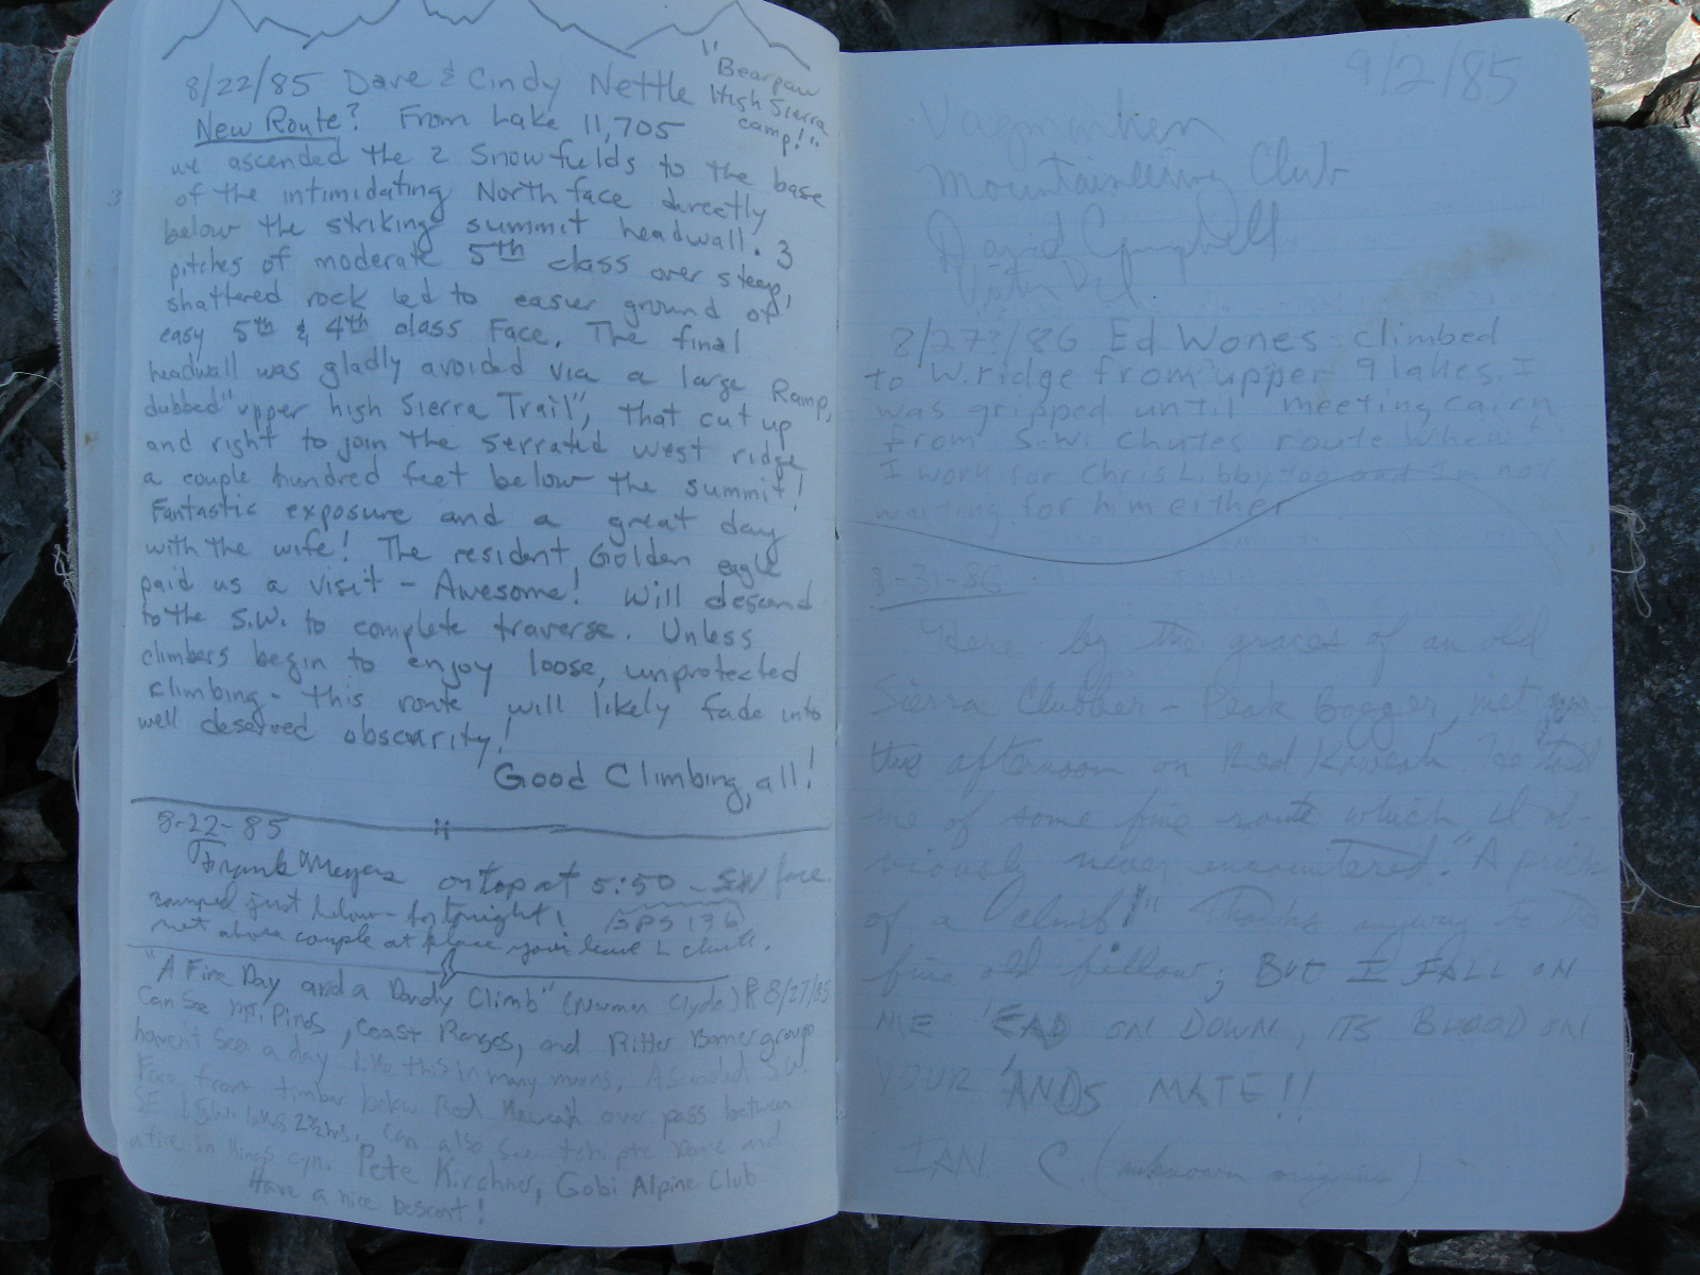 8/22/85 Dave & Cindy Nettle
"Bearpaw
High Sierra
camp!"
New Route? From Lake 11,705
we ascended the 2 snowfields to the base
of the intimidating North face directly
below the striking summit headwall. 3
pitches of moderate 5th class over steep,
shattered rock led to easier ground of
easy 5th & 4th class Face. The final
headwall was gladly avoided via a large Ramp,
dubbed "upper high Sierra Trail", that cut up
and right to join the serrated west ridge
a couple hundred feet below the summit!
Fantastic exposure and a great day
with the wife! The resident Golden eagle
paid us a visit - Awesome! Will descend
to the S.W. to complete traverse. Unless
climbers begin to enjoy loose, unprotected
climbing - this route will likely fade into
well deserved obscurity!
Good Climbing, all!
8-22-85
Frank Meyers on top at 5:50 - SW face.
camped just below - for tonight! SPS 196
met above couple at place you leave L chute.
"A Fine Day and a Dandy Climb" (Norman Clyde) 8/27/85
Can see Mt. Pinos, Coast Ranges, and Ritter Banner group
havent seen a day like this in many moons. Ascended S.W.
Face from timber below Red Kaweah over pass between
2½ hrs. Can also see Tehipite Dome and
a fire in Kings cyn. Pete Kirchner, Gobi Alpine Club
Have a nice Descent!
9/2/85
Vagmarken
Mountaineering Club
David Campbell
8/27?/86 Ed Wones climbed
to W. ridge from upper 9 lakes. I
was gripped until meeting cairn
from S.W. chutes route when
I work for Chris Libby too and I'm not
waiting for him either
8-31-86
Here by the graces of an old
Sierra Clubber - Peak Bagger, met
this afternoon on Red Kaweah. He told
me of some fine route which I ob-
viously never encountered. "A
of a climb!" Thanks anyway to the
fine old fellow; BUT I FALL ON
ME 'EAD ON DOWN, ITS BLOOD ON
YOUR 'ANDS MATE!!
IAN C. (unknown origins)